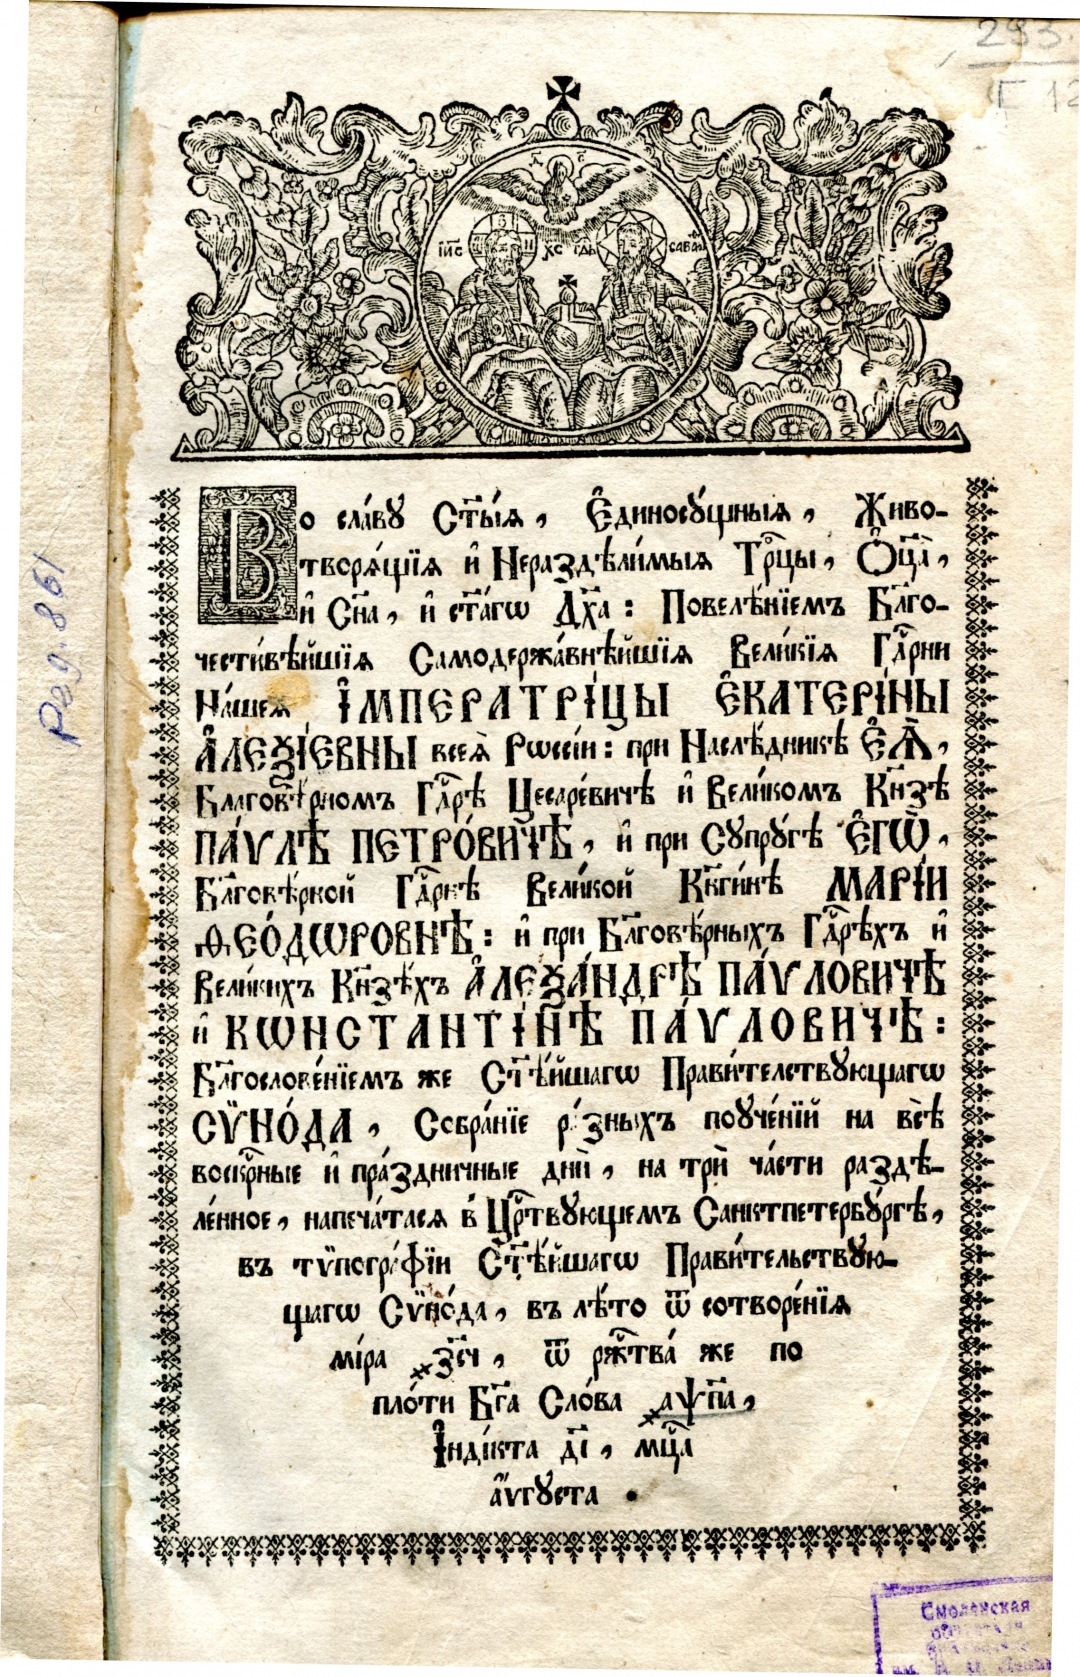 293.
Г 12
Рег. 861
І҆И҃С Х҃С
Во сла́вꙋ Ст҃ы́ѧ, Є҆диносꙋ́щныѧ, Живо-
творѧ́щїѧ и҆ Нераздѣли́мыѧ Трⷪ҇цы, Ѻ҆ц҃а̀,
и҆ Сн҃а, и҆ ст҃а́гѡ Дх҃а: Повелѣ́нїемъ Бл҃го-
чести́вѣйшїѧ Самодержа́внѣйшїѧ Вели́кїѧ Гдⷭ҇рни
На́шеѧ И҆МПЕРАТРІ́ЦЫ Є҆КАТЕРІ́НЫ
А҆ЛЕѮІ́ЕВНЫ всеѧ̀ Рѡссі́и: при Наслѣ́дникѣ Є҆Ѧ̀,
Благовѣ́рномъ Гдⷭ҇рѣ Цесаре́вичѣ и҆ Вели́комъ Кн҃зѣ
ПА́ѴЛѢ ПЕТРО́ВИЧѢ, и҆ при Сꙋпрꙋ́гѣ Є҆ГѠ̀,
Бл҃говѣ́рной Гдⷭ҇рнѣ Вели́кой Кн҃ги́нѣ МАРІ́И
Ѳ҆ЕО́ДѠРОВНѢ: и҆ при Бл҃говѣ́рныхъ Гдⷭ҇рѣхъ и҆
Вели́кихъ Кн҃зѣ́хъ А҆ЛЕѮА́НДРѢ ПА́ѴЛОВИЧѢ
и҆ КѠНСТАНТІ́НѢ ПА́ѴЛОВИЧѢ:
Бл҃гослове́нїемъ же Ст҃ѣ́йшагѡ Прави́телствꙋющагѡ
СѴ̈НО́ДА, Собра́нїе ра́зныхъ поꙋче́нїй на всѣ̀
воскрⷭ҇ные и҆ пра́здничные днѝ, на трѝ ча́сти раздѣ-
ле́нное, напеча́тасѧ в̾ Црⷭ҇твꙋющемъ Санктпетербꙋ́ргѣ,
въ тѷпогра́фїи Ст҃ѣ́йшагѡ Прави́тельствꙋю-
щагѡ Сѷно́да, въ лѣ́то ѿ сотворе́нїѧ
мі́ра ҂зс҃ч, ѿ ржⷭ҇тва́ же по
пло́ти Бг҃а Сло́ва ҂аѱ҃па,
І҆нді́кта д҃і, мцⷭ҇а
а҆́ѵгꙋста.
Смоленская
областная